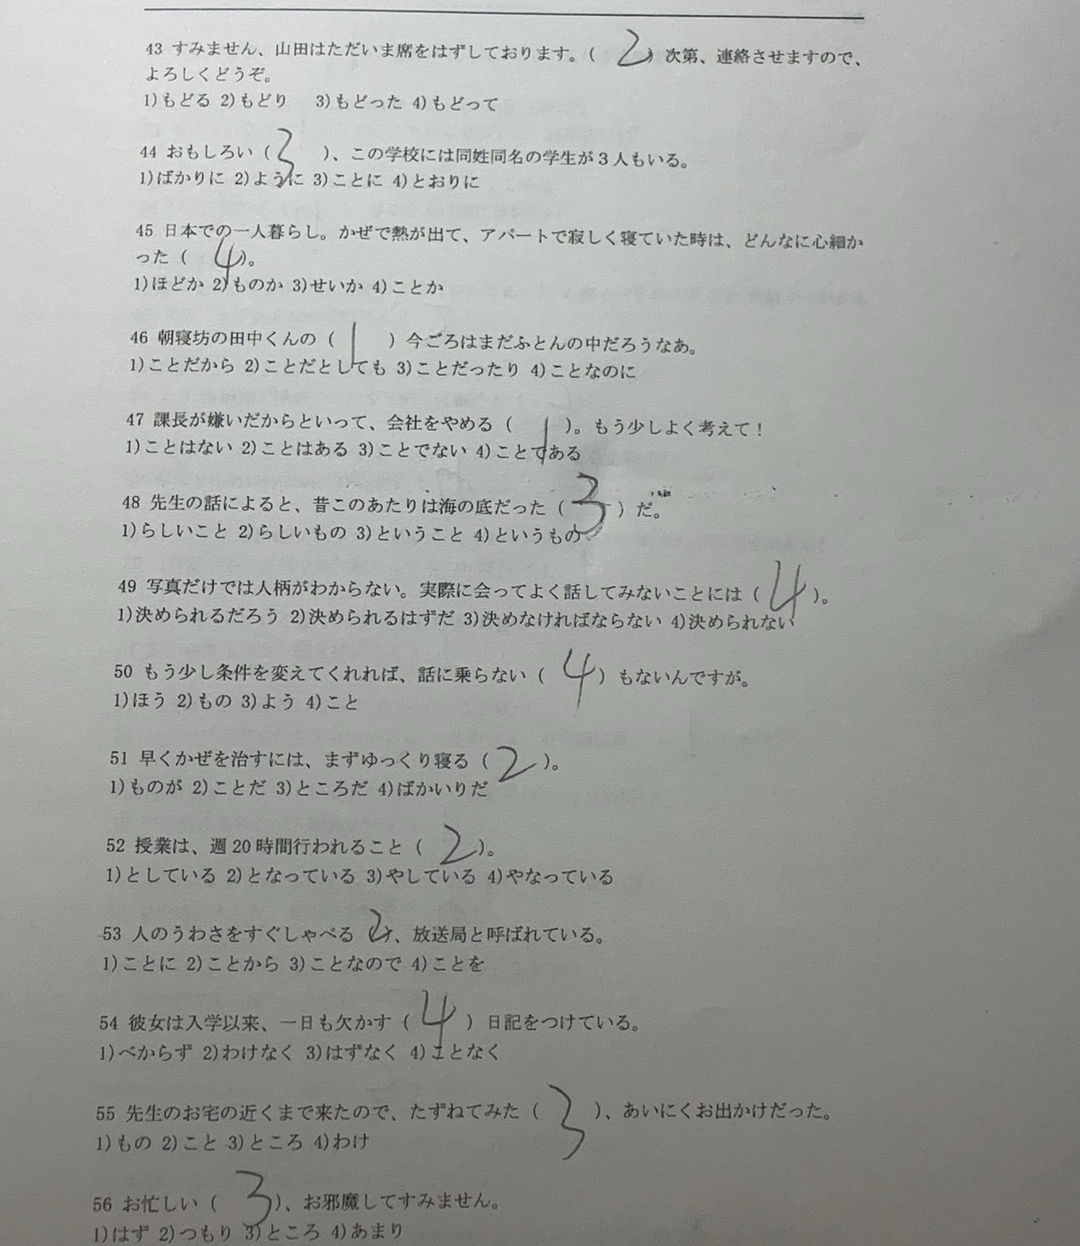 43 すみません、山田はただいま席をはずしております。( 2 ) 次第、連絡させますので、
よろしくどうぞ。
1)もどる 2)もどり 3)もどった 4)もどって
44 おもしろい ( 3 )、この学校には同姓同名の学生が３人もいる。
1)ばかりに 2)ように 3)ことに 4)とおりに
45 日本での一人暮らし。かぜで熱が出て、アパートで寂しく寝ていた時は、どんなに心細か
った ( 4 )。
1)ほどか 2)ものか 3)せいか 4)ことか
46 朝寝坊の田中くんの ( 1 ) 今ごろはまだふとんの中だろうなあ。
1)ことだから 2)ことだとしても 3)ことだったり 4)ことなのに
47 課長が嫌いだからといって、会社をやめる ( 1 )。もう少しよく考えて！
1)ことはない 2)ことはある 3)ことでない 4)ことである
48 先生の話によると、昔このあたりは海の底だった ( 3 ) だ。
1)らしいこと 2)らしいもの 3)ということ 4)というもの
49 写真だけでは人柄がわからない。実際に会ってよく話してみないことには ( 4 )。
1)決められるだろう 2)決められるはずだ 3)決めなければならない 4)決められない
50 もう少し条件を変えてくれれば、話に乗らない ( 4 ) もないんですが。
1)ほう 2)もの 3)よう 4)こと
51 早くかぜを治すには、まずゆっくり寝る ( 2 )。
1)ものが 2)ことだ 3)ところだ 4)ばかいりだ
52 授業は、週 20 時間行われること ( 2 )。
1)としている 2)となっている 3)やしている 4)やなっている
53 人のうわさをすぐしゃべる 2、放送局と呼ばれている。
1)ことに 2)ことから 3)ことなので 4)ことを
54 彼女は入学以来、一日も欠かす ( 4 ) 日記をつけている。
1)べからず 2)わけなく 3)はずなく 4)ことなく
55 先生のお宅の近くまで来たので、たずねてみた ( 3 )、あいにくお出かけだった。
1)もの 2)こと 3)ところ 4)わけ
56 お忙しい ( 3 )、お邪魔してすみません。
1)はず 2)つもり 3)ところ 4)あまり